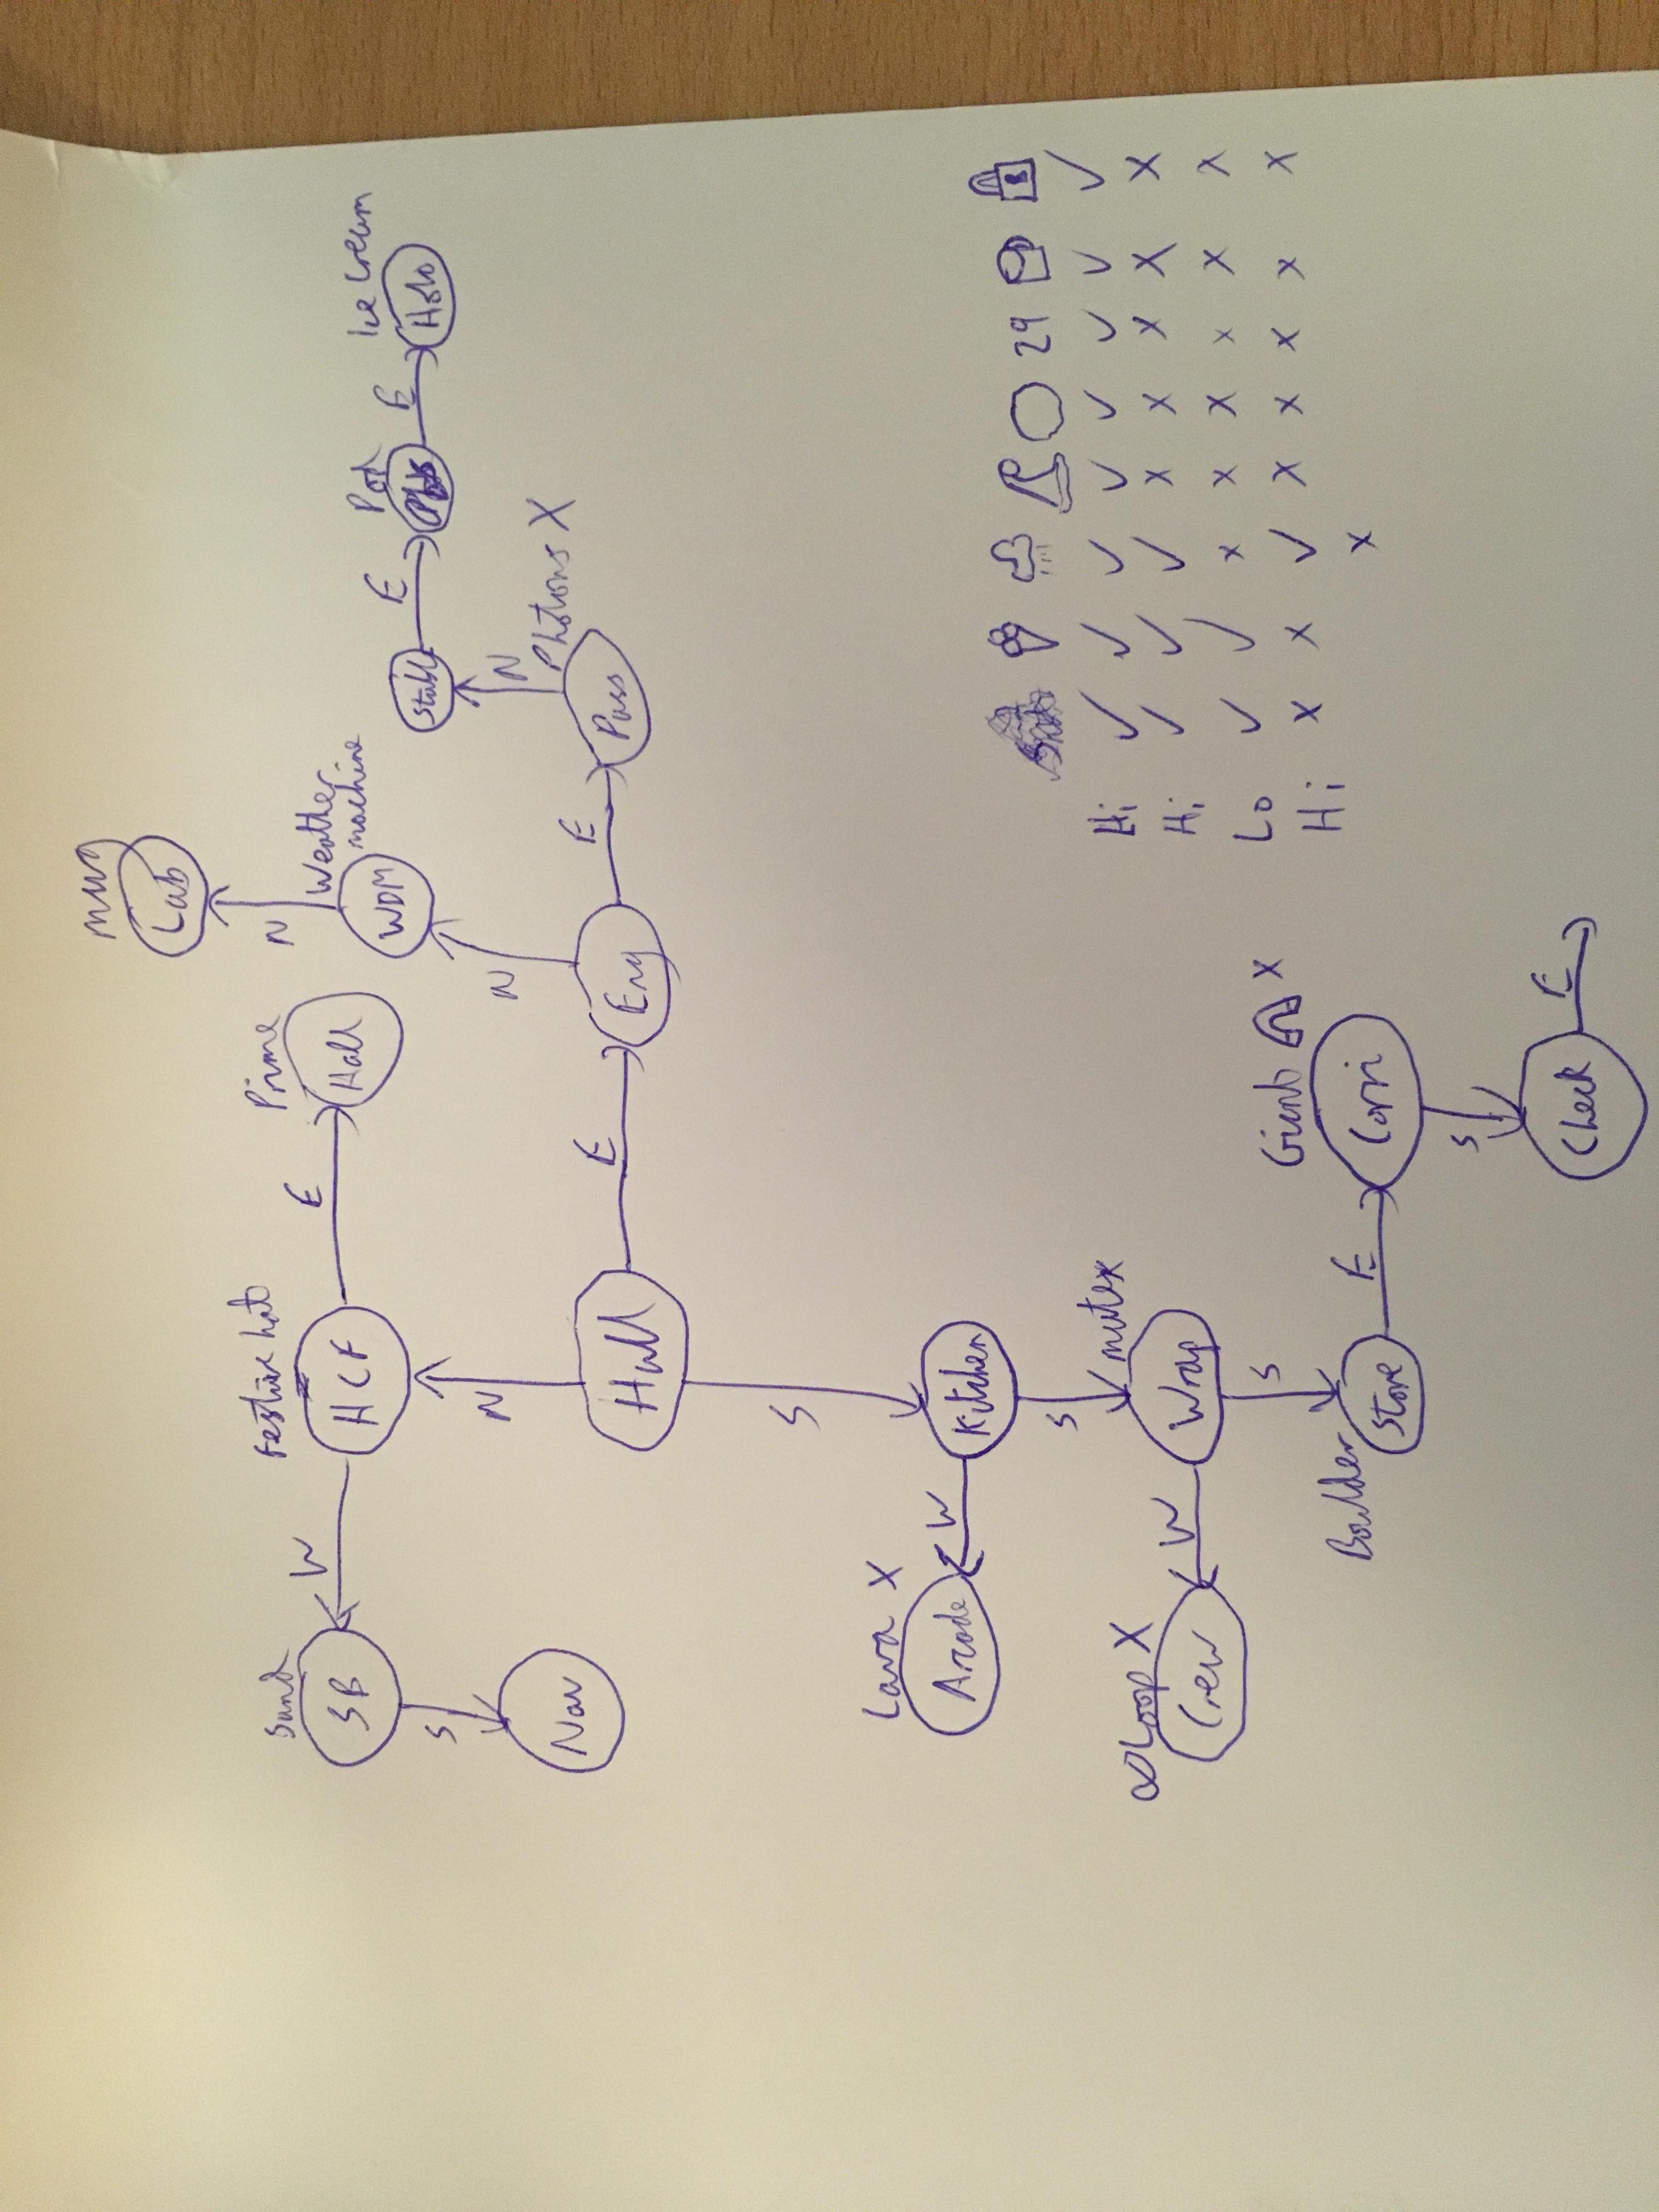 mug
Lab
N
Weather
machine
WDM
Sand
SB
W
Festive hat
HCF
E
Prime
Hall
Stable
E
Pod
E
Ice Cream
Holo
S
Nav
N
N
N
Photons X
Hall
E
Eng
E
Pass
S
Lava X
Arcade
W
Kitchen
S
mutex
∞ Loop X
Crew
W
Wrap
S
Giant X
Boulder
Store
E
Corri
S
Check
E
29
Hi ✓ ✓ ✓ ✓ ✓ ✓ ✓ ✓
Hi ✓ ✓ ✓ x x x x x
Lo ✓ ✓ x x x x x x
Hi x x ✓ x x x x x
x